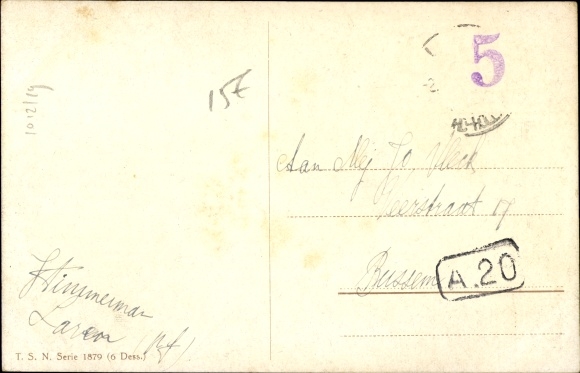 10 12/19
15€
5
Aan Mej Jo Vleck
straat 17
Bussem
A.20
Timmerman
Laren
T. S. N. Serie 1879 (6 Dess.)